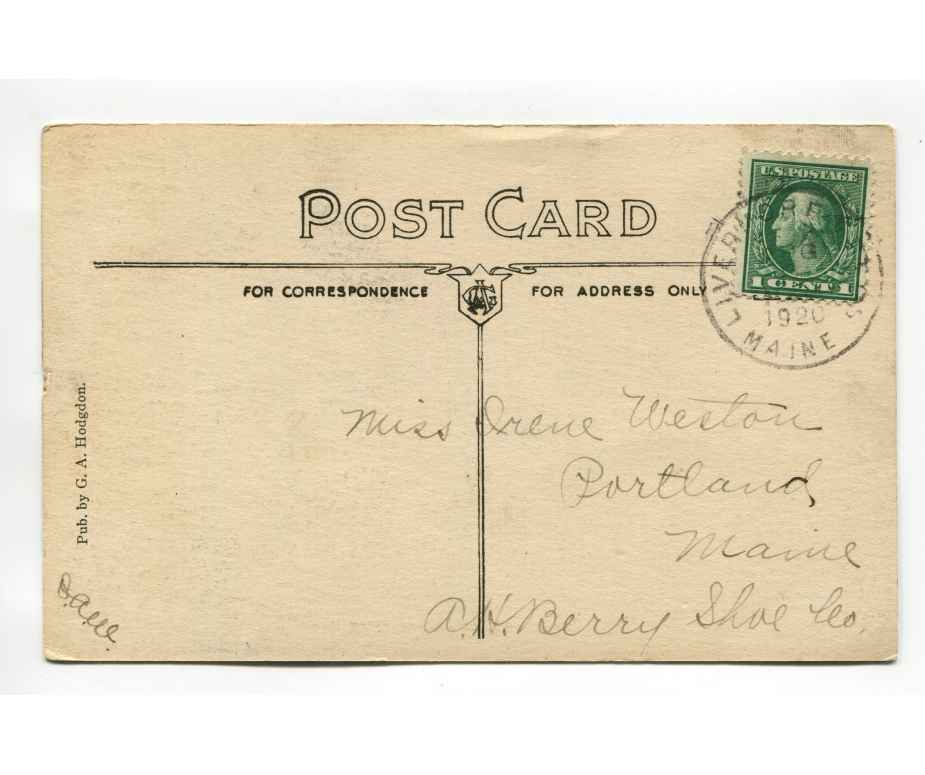 POST CARD
U.S. POSTAGE
1 CENT 1
FOR CORRESPONDENCE
FOR ADDRESS ONLY
LIVERMORE FALLS
1920
MAINE
Miss Irene Weston
Portland,
Maine
A.H. Berry Shoe Co.
Pub. by G. A. Hodgdon.